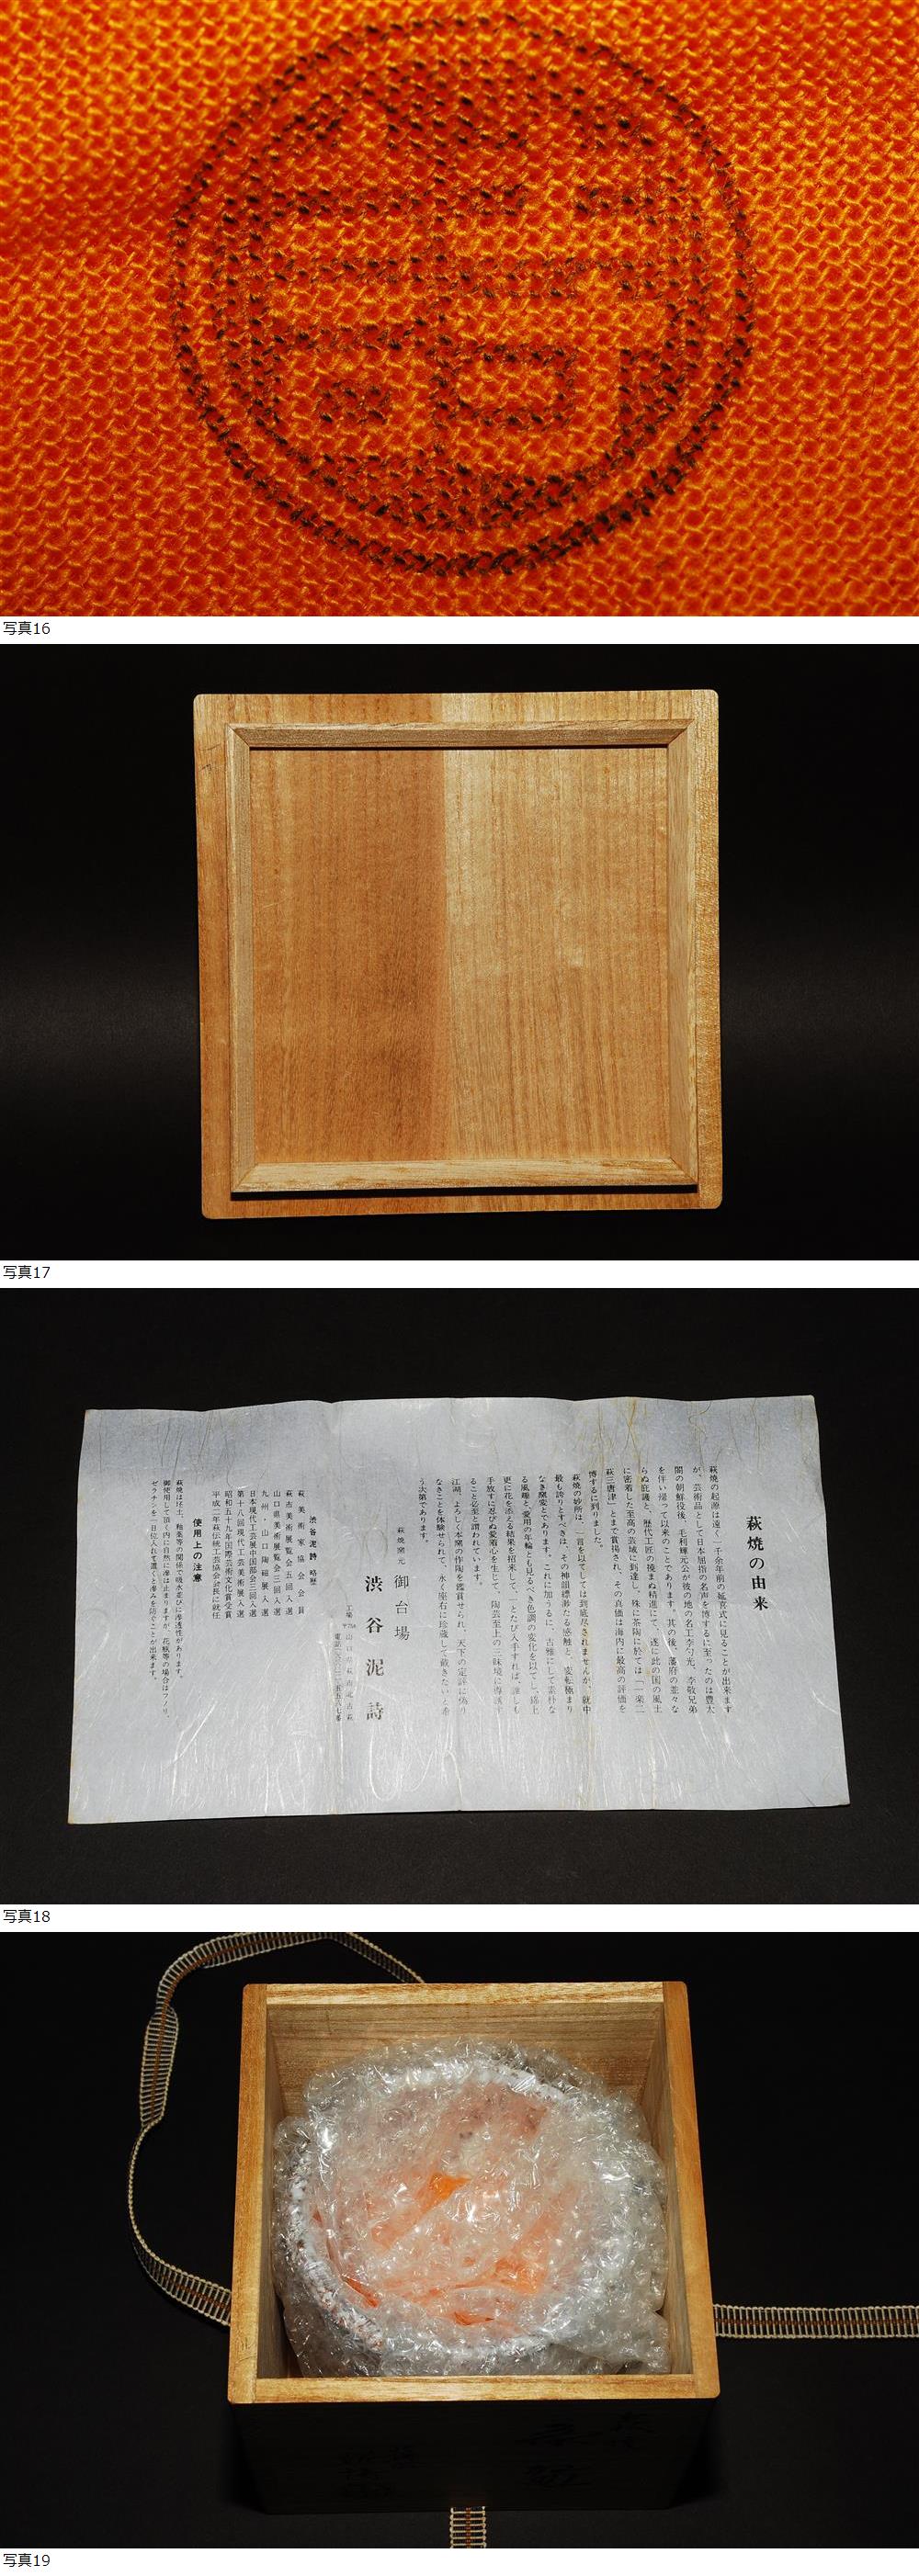 写真16
写真17
萩焼の由来
萩焼の起源は遠く一千余年前の延喜式に見ることが出来ます
が、芸術品として日本屈指の名声を博するに至ったのは豊太
閤の朝鮮役後、毛利輝元公が彼の地の名工李勺光、李敬兄弟
を伴い帰って以来のことであります。其の後、藩府の並々な
らぬ庇護と、歴代工匠の撓まぬ精進にて、遂に此の国の風土
に密着した至高の芸域に到達し、殊に茶陶に於ては「一楽二
萩三唐津」とまで賞揚され、その真価は海内に最高の評価を
博するに到りました。
萩焼の妙所は、一言を以てしては到底尽されませんが、就中
最も誇りとすべきは、その神韻縹渺たる感触と、変転極まり
なき窯変とであります。これに加うるに、古雅にして素朴な
る風雕と、愛用の年輪とも見るべき色調の変化を以てし、錦上
更に花を添える結果を招来して、一とたび入手すれば、誰しも
手放すに忍びぬ愛着心を生じて、陶芸至上の三昧境に
ること必至と謂われています。
江湖、よろしく本窯の作陶を鑑賞せられ、天下の定評に偽り
なきことを体験せられて、永く座右に珍蔵して戴きたいと希
う次第であります。
萩焼窯元 御台場
渋谷泥詩
工場 山口県萩市
渋谷泥詩 略歴
萩美術家協会会員
萩市美術展覧会五回入選
山口県美術展覧会三回入選
九州・山口陶磁展入選
日本現代工芸展中国部会三回入選
第十八回現代工芸美術展入選
昭和五十九年国際芸術文化賞受賞
平成二年萩伝統工芸協会会長に就任
使用上の注意
萩焼は坯土、釉薬等の関係で吸水並びに滲透性があります。
御使用して頂く内に自然に滲は止まりますが、花瓶等の場合はフノリ、
ゼラチンを一日位入れて置くと滲みを防ぐことが出来ます。
写真18
写真19